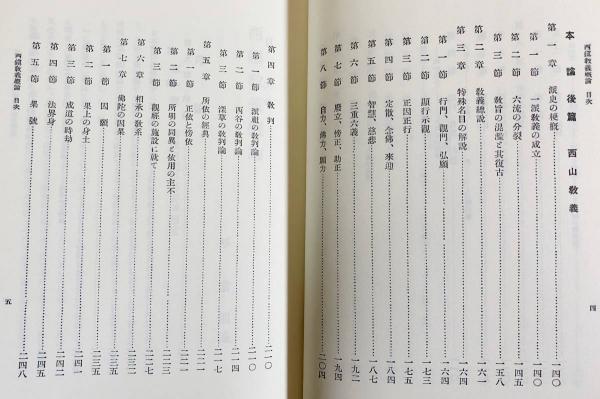 西鎮教義概論 目次
本論後篇 西山教義
第一章 派史の梗概……一四〇
第一節 一派教義の成立……一四〇
第二節 六流の分裂……一四五
第三節 教旨の混濫と其復古……一五八
第二章 教義總説……一六一
第三章 特殊名目の解説……一六四
第一節 行門、觀門、弘願……一六四
第二節 顯行示觀……一七三
第三節 正因正行……一八〇
第四節 定散、念佛、來迎……一八四
第五節 智慧、慈悲……一八七
第六節 三重六義……一九二
第七節 廢立、傍正、助正……一九四
第八節 自力、佛力、願力……二〇四
四
第四章 教判……二一〇
第一節 派祖の教判論……二一〇
第二節 西谷の教判論……二一四
第三節 深草の教判論……二一七
第五章 所依の經典……二二一
第一節 正依と傍依……二二一
第二節 所明の同異と依用の主不……二二二
第三節 觀經の施設に就て……二二三
第六章 相承の教系……二三二
第七章 佛陀の因果……二三五
第一節 因願……二三五
第二節 果上の身土……二四一
第三節 成道の時劫……二四二
第四節 法界身……二四五
第五節 果號……二四八
西鎮教義概論 目次
五